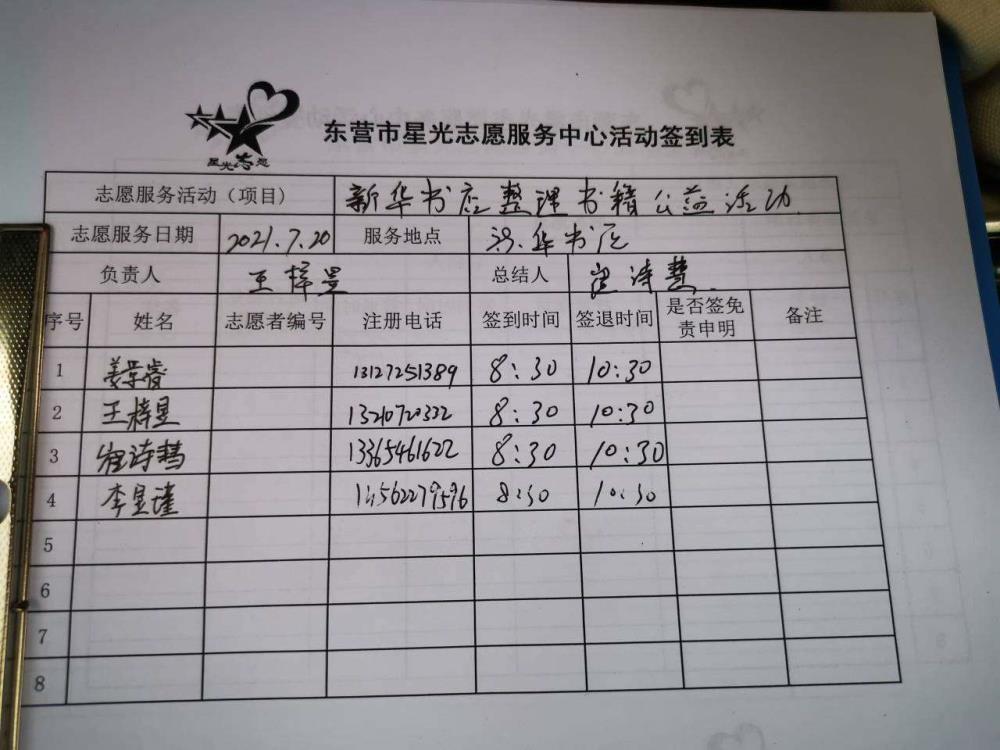 星光志愿
东营市星光志愿服务中心活动签到表
志愿服务活动（项目） 新华书店整理书籍公益活动
志愿服务日期 2021.7.20 服务地点 新华书店
负责人 王梓昱 总结人 崔诗慧
序号 姓名 志愿者编号 注册电话 签到时间 签退时间 是否签免责申明 备注
1 13127251389 8:30 10:30
2 王梓昱 13210720322 8:30 10:30
3 崔诗慧 13365461622 8:30 10:30
4 李昱瑾 8:30 10:30
5
6
7
8